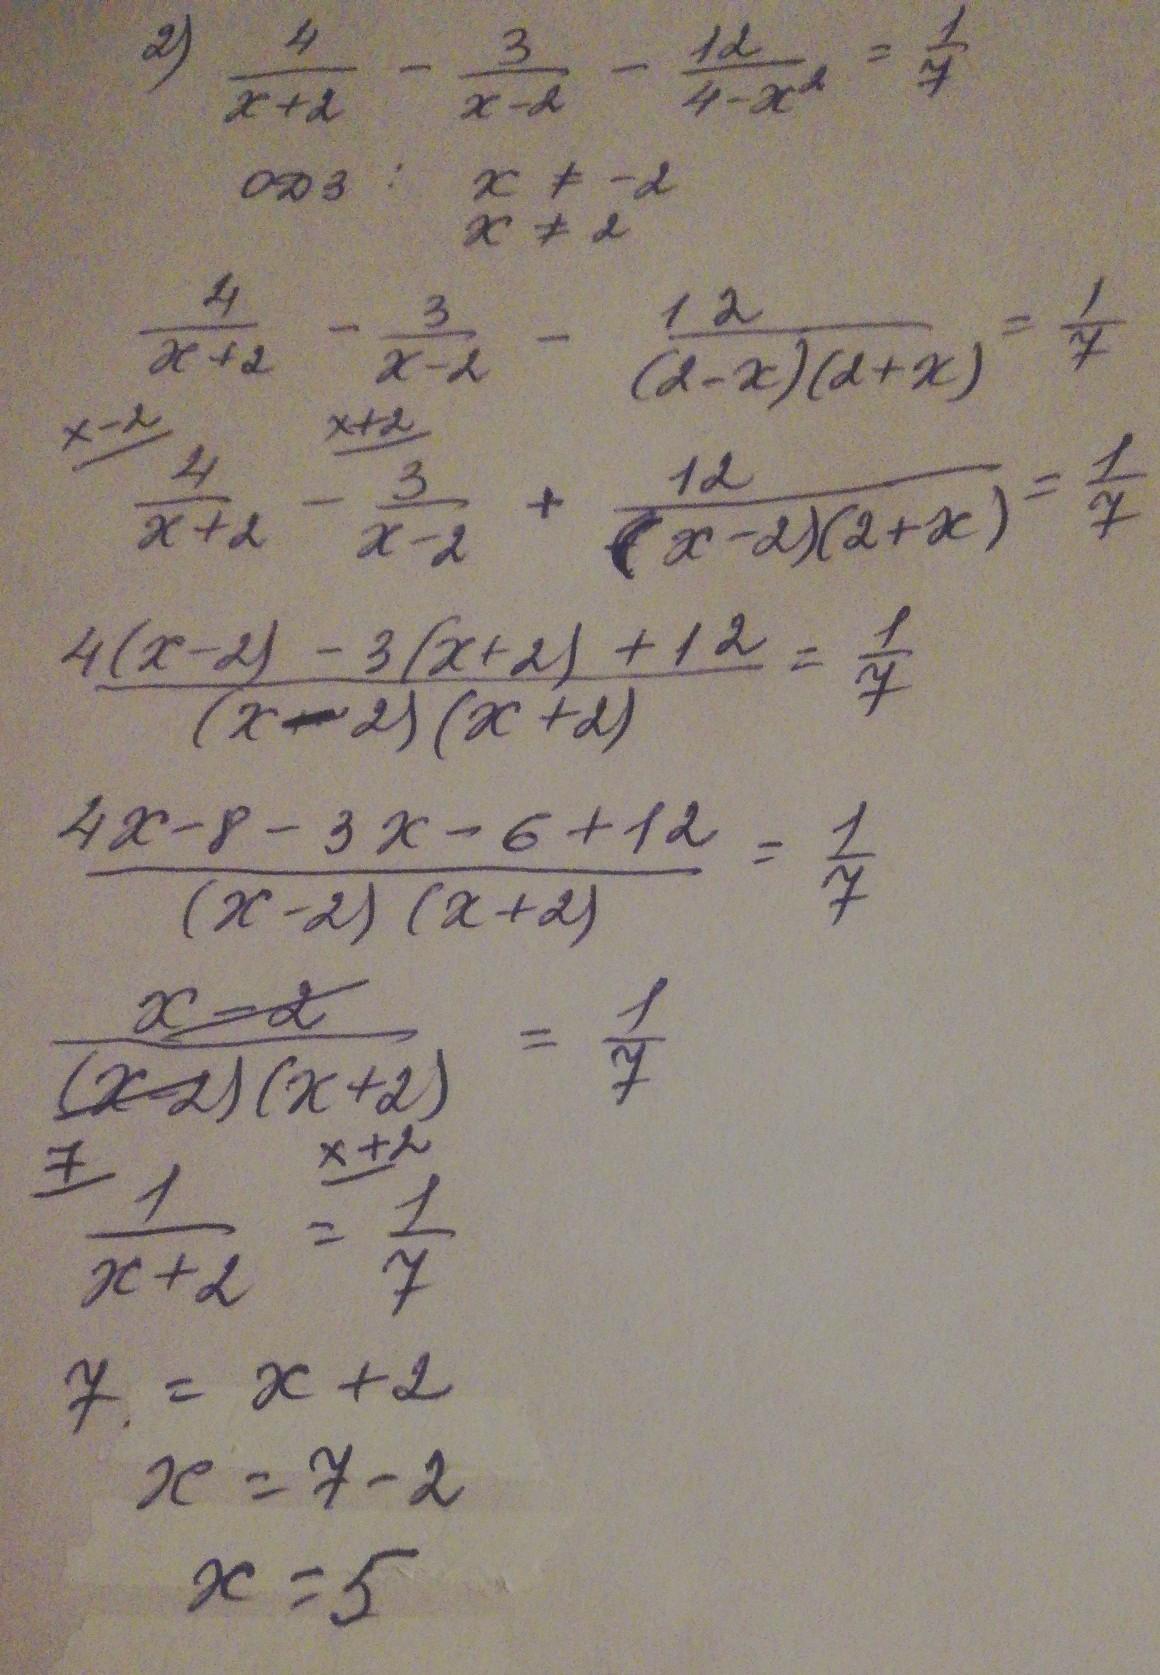 2) 4/(x+2) - 3/(x-2) - 12/(4-x²) = 1/7
ОДЗ: x ≠ -2
x ≠ 2
4/(x+2) - 3/(x-2) - 12/((2-x)(2+x)) = 1/7
x-2 x+2
4/(x+2) - 3/(x-2) + 12/((x-2)(2+x)) = 1/7
(4(x-2) - 3(x+2) + 12)/((x-2)(x+2)) = 1/7
(4x-8-3x-6+12)/((x-2)(x+2)) = 1/7
(x-2)/((x-2)(x+2)) = 1/7
7 x+2
1/(x+2) = 1/7
7 = x+2
x = 7-2
x = 5